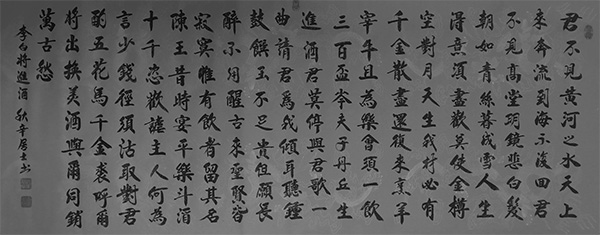 君不見黃河之水天上
來奔流到海不復回君
不見高堂明鏡悲白髮
朝如青絲暮成雪人生
得意須盡歡莫使金樽
空對月天生我材必有
千金散盡還復來烹羊
宰牛且為樂會須一飲
三百盃岑夫子丹丘生
進酒君莫停與君歌一
曲請君為我傾耳聽鍾
鼓饌玉不足貴但願長
醉不用醒古來聖賢皆
寂寞惟有飲者留其名
陳王昔時宴平樂斗酒
十千恣歡謔主人何為
言少錢徑須沽取對君
酌五花馬千金裘呼爾
將出換美酒與爾同銷
萬古愁
李白將進酒 秋辛居士书